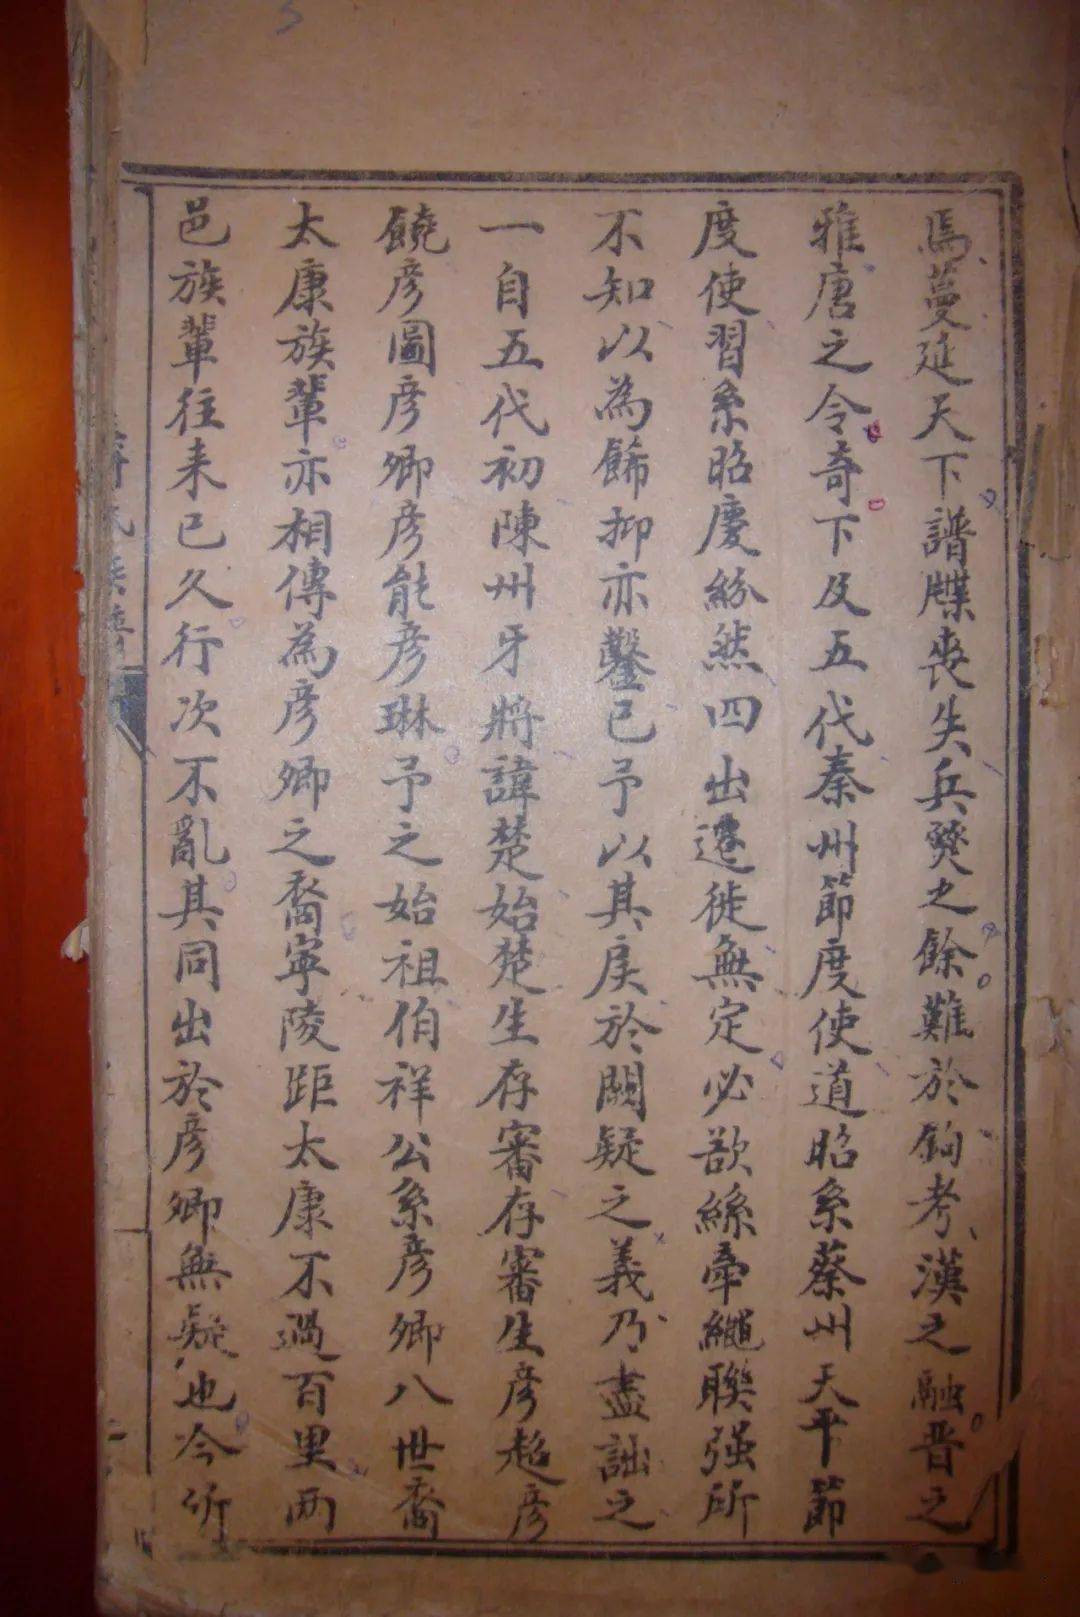 焉蔓延天下譜牒喪失兵燹之餘難於鉤考漢之融晋之
雅唐之令奇下及五代秦州節度使道昭系蔡州天平節
度使習系昭慶紛然四出遷徙無定必欲絲牽繩聯强所
不知以為飾抑亦鑿已予以其戾於闕疑之義乃盡詘之
一自五代初陳州牙將諱楚始楚生存審存審生彦超彦
饒彦圖彦卿彦能彦琳予之始祖伯祥公系彦卿八世裔
太康族輩亦相傳為彦卿之裔寧陵距太康不過百里两
邑族輩往来已久行次不亂其同出於彦卿無疑也今所
氏族譜